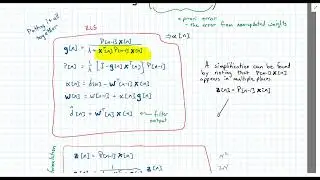 Putting it all
together
RLS
g[n] = P[n-1] x[n] / λ + xᵀ[n] P[n-1] x[n]
P[n] = 1/λ [I - g[n] xᵀ[n]] P[n-1]
α[n] = d[n] - wᵀ[n-1] x[n]
w[n] = w[n-1] + α[n] g[n]
d̂[n] = wᵀ[n] x[n] ← filter
output
a priori error
- the error from nonupdated weights
⇒ α[n]
A simplification can be found
by noting that P[n-1] x[n]
appears in multiple places
z[n] = P[n-1] x[n]
z[n] = P[n-1] x[n]